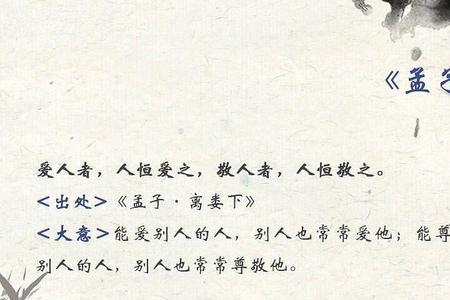 《孟子
爱人者，人恒爱之，敬人者，人恒敬之。
<出处>《孟子·离娄下》
<大意>能爱别人的人，别人也常常爱他；能尊
别人的人，别人也常常尊敬他。